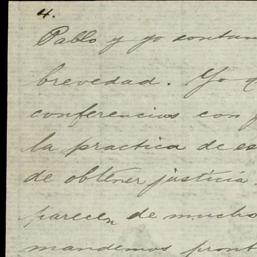 4.
Pablo y yo
brevedad. Yo
conferencias con
la practica de
de obtener justicia
parecen de mucho
mandemos